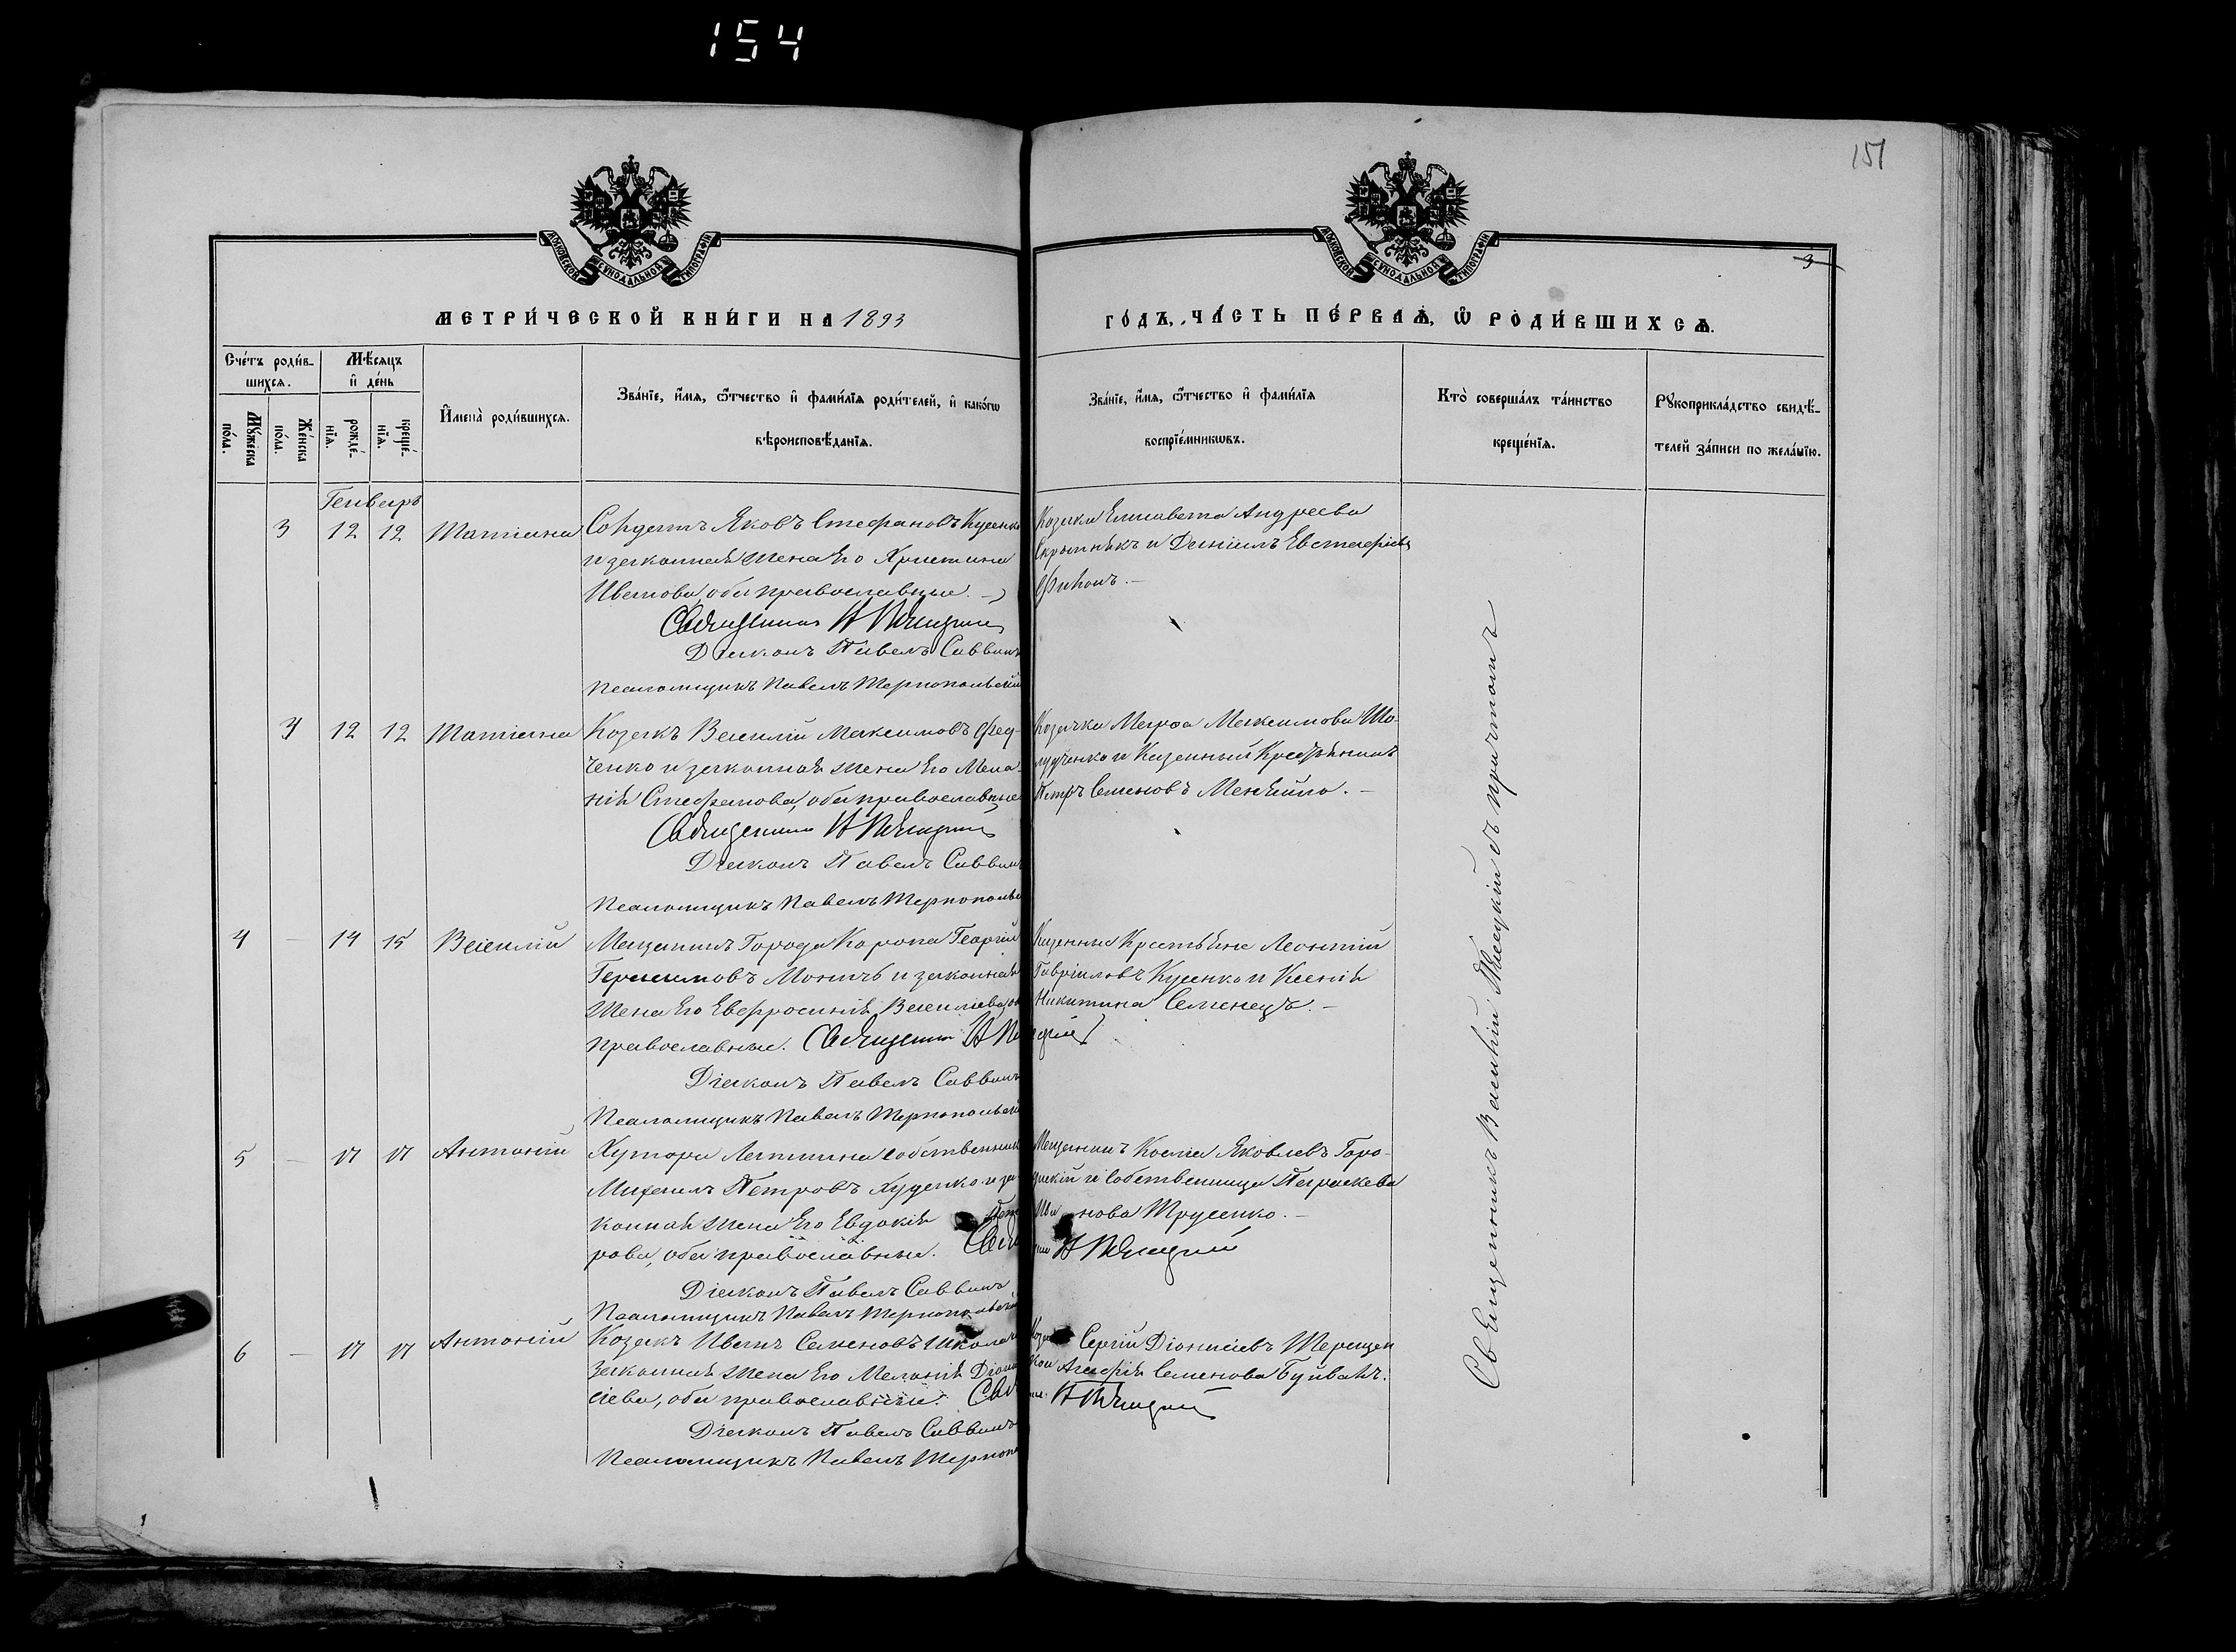 154
151
3
МОСКОВСКОЙ СУНОДАЛЬНОЙ ТИПОГРАФІИ
МОСКОВСКОЙ СУНОДАЛЬНОЙ ТИПОГРАФІИ
МЕТРИ́ЧЕСКОЙ КНИ́ГИ НА 1893
ГО́ДЪ, ЧА́СТЬ ПЕ́РВАѦ, Ѡ РОДИ́ВШИХСѦ.
Сче́тъ роди́в-
шихсѧ.
Мѣ́сѧцъ
и де́нь
Мꙋ́жеска по́ла.
Же́нска по́ла.
рожде́-нїѧ.
креще́-нїѧ.
Имена̀ роди́вшихсѧ.
Зва́нїе, и́мѧ, ѻ҆́тчество и фами́лїѧ роди́телей, и како́гѡ
вѣроисповѣ́данїѧ.
Зва́нїе, и́мѧ, ѻ҆́тчество и фами́лїѧ
воспрїе́мникѡвъ.
Кто̀ соверша́лъ та́инство
креще́нїѧ.
Рꙋкоприкла́дство свидѣ́-
телей за́писи по жела́нїю.
Генварь
3 12 12 Татіана Солдатъ Яковъ Стефановъ Кусенко
и законная жена Его Христина
Иванова, оба православные.
Священникъ
Діаконъ Павелъ Саввинъ
Псаломщикъ Павелъ Тернопольскій
Козачка Елисавета Андреева
и Даніилъ Евстафіевъ
4 12 12 Татіана Козакъ Василій Максимовъ Фед-
ченко и законная жена Его Мела-
нія Стефанова, оба православные
Священникъ
Діаконъ Павелъ Саввинъ
Псаломщикъ Павелъ Тернополь
Козачка Марфа Максимова Шо-
лудченко и Казенный Крестьянинъ
Петръ Семеновъ Мензайло.
4 — 14 15 Василій Мещанинъ Города Коропа Георгій
Герасимовъ Моничъ и законная
жена Его Евфросинія Василіева, оба
православные. Священникъ
Діаконъ Павелъ Саввинъ
Псаломщикъ Павелъ Тернопольскій
Казенные Крестьяне Леонтій
Гавріиловъ Кусенко и Ксенія
Никитина Семенецъ.
5 — 17 17 Антоній Хутора Лапшина собственникъ
Михаилъ Петровъ Худенко и за
конная жена Его Евдокія Пет
рова, оба православные.
Діаконъ Павелъ Саввинъ
Псаломщикъ Павелъ Тернопольскій
Мещанинъ Косма Яковлевъ Горо-
дискій и собственница Параскева
Ива нова Трусенко.
6 — 17 17 Антоній Козакъ Иванъ Семеновъ Школа и
законная жена Его Меланія Діони
сіева, оба православные.
Діаконъ Павелъ Саввинъ
Псаломщикъ Павелъ Терноп
Сергій Діонисіевъ Терещен
ко и Агафія Семенова Буйвалъ.
Священникъ Василій съ причтомъ